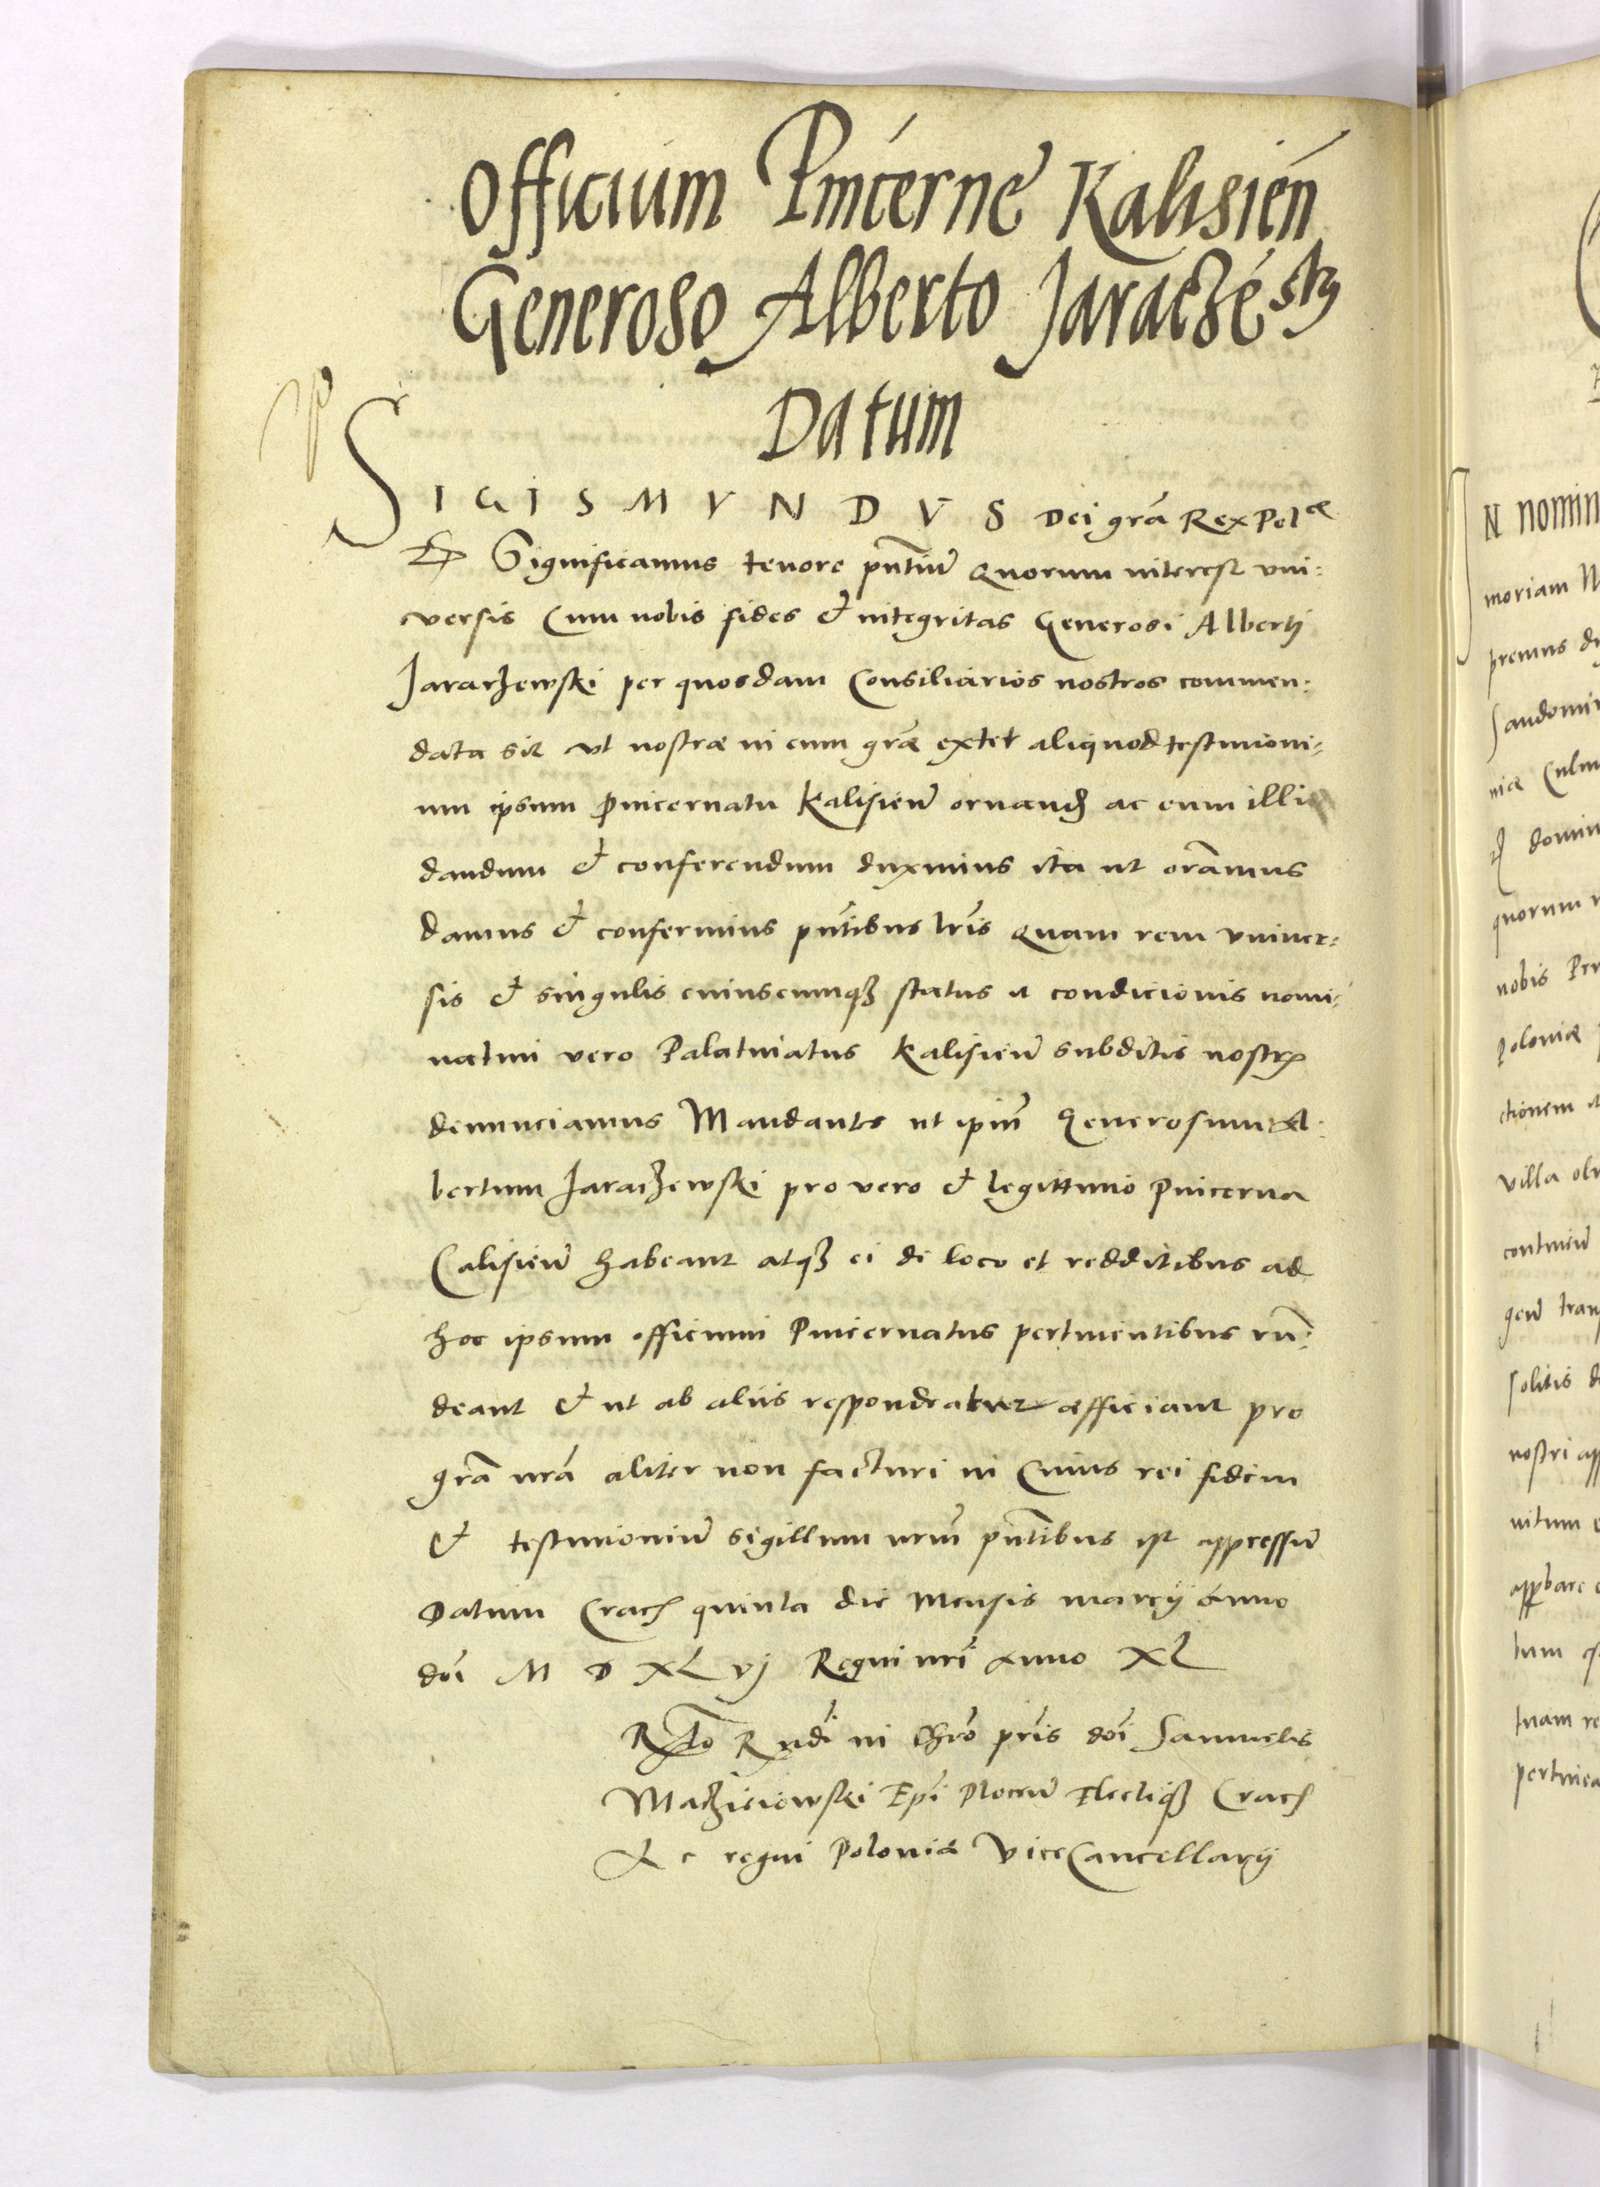 Officium Pincerne Kalisień
Generoso Alberto Jaraczésky
Datum
SIGISMVNDVS Dei grã Rex Pol æ
Significamus tenore pñtiũ Quorum interest vni:
versis Cum nobis fides & integritas Generosi Alberti
Jaraczewski per quosdam Consiliarios nostros commen:
data sit vt nostræ in eum grãe extet aliquod testimoni:
um ipsum Pincernatu Kalisieñ ornand ac eum illi
dandum & conferendum duximus ita ut orãmus
damus & conferimus pñtibus lrĩs Quam rem vniver:
sis & singulis cuiuscumqꝫ status et condicionis nomi:
natim vero Palatinatus Kalisieñ subditis nostrꝭ
denunciamus Mandantes ut ipm̃ Generosum Al:
bertum Jaraczewski pro vero & legittimo Pincerna
Calisieñ habeant atqꝫ ei de loco et redditibus ad
hoc ipsum officium Pincernatus pertinentibus rñ:
deant & ut ab aliis respondeatur efficiant pro
grã nrã aliter non facturi in Cuius rei fidem
& testimoniũ sigillum nrm̃ pñtibus est appressũ
Datum Crac quinta die Mensis marcij Anno
doĩ M D XL vj Regni nrĩ Anno XL
Rto Rndi in Chrõ prĩs doĩ Samuelis
Maczieiowski Epĩ Ploceñ Electiqꝫ Crac
& c regni Poloniæ ViceCancellarij
N nomin
moriam
premus
Sandomi
niæ Culm
domin
quorum
nobis
Poloniæ
ctionem
villa
continen
gen tran
solitis
nostri
nitum
tum
tuam re
pertinea